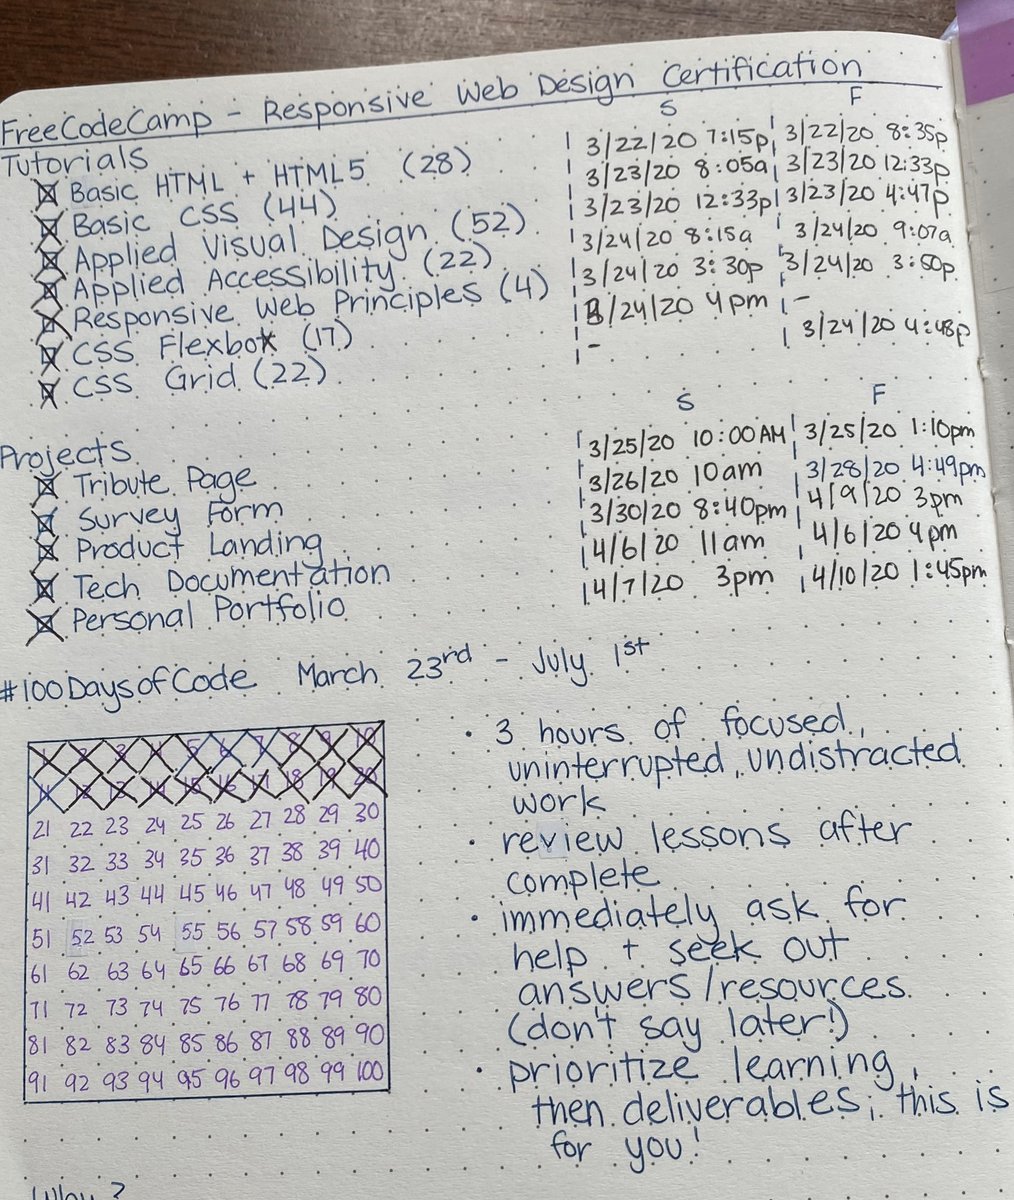 FreeCodeCamp - Responsive Web Design Certification
Tutorials S F
Basic HTML + HTML5 (28) 3/22/20 7:15p 3/22/20 8:35p
Basic CSS (44) 3/23/20 8:05a 3/23/20 12:33p
Applied Visual Design (52) 3/23/20 12:33p 3/23/20 4:47p
Applied Accessibility (22) 3/24/20 8:15a 3/24/20 9:07a
Responsive Web Principles (4) 3/24/20 3:30p 3/24/20 3:50p
CSS Flexbox (17) 3/24/20 4pm -
CSS Grid (22) - 3/24/20 4:48p
Projects S F
Tribute Page 3/25/20 10:00AM 3/25/20 1:10pm
Survey Form 3/26/20 10am 3/28/20 4:49pm
Product Landing 3/30/20 8:40pm 4/9/20 3pm
Tech Documentation 4/6/20 11am 4/6/20 4pm
Personal Portfolio 4/7/20 3pm 4/10/20 1:45pm
#100DaysofCode March 23rd - July 1st
1 2 3 4 5 6 7 8 9 10
11 12 13 14 15 16 17 18 19 20
21 22 23 24 25 26 27 28 29 30
31 32 33 34 35 36 37 38 39 40
41 42 43 44 45 46 47 48 49 50
51 52 53 54 55 56 57 58 59 60
61 62 63 64 65 66 67 68 69 70
71 72 73 74 75 76 77 78 79 80
81 82 83 84 85 86 87 88 89 90
91 92 93 94 95 96 97 98 99 100
• 3 hours of focused,
uninterrupted, undistracted
work
• review lessons after
complete
• immediately ask for
help + seek out
answers/resources
(don't say later!)
• prioritize learning,
then deliverables; this is
for you!
Why?